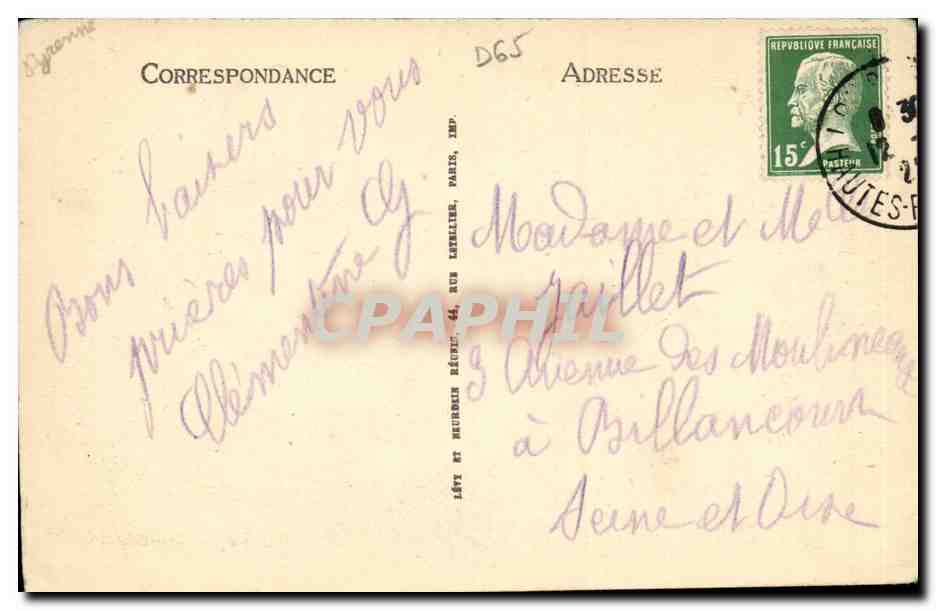 Pyrenne
D65
CORRESPONDANCE
Bons baisers
prières pour vous
Clémentine
LÉVY ET NEURDEIN RÉUNIS, 44, RUE LETELLIER, PARIS, IMP.
ADRESSE
REPVBLIQUE FRANÇAISE
15c
PASTEUR
HAUTES-P
Madame et Melle
Jaillet
9 Avenue des Moulineaux
à Billancourt
Seine et Oise
CPAPHIL